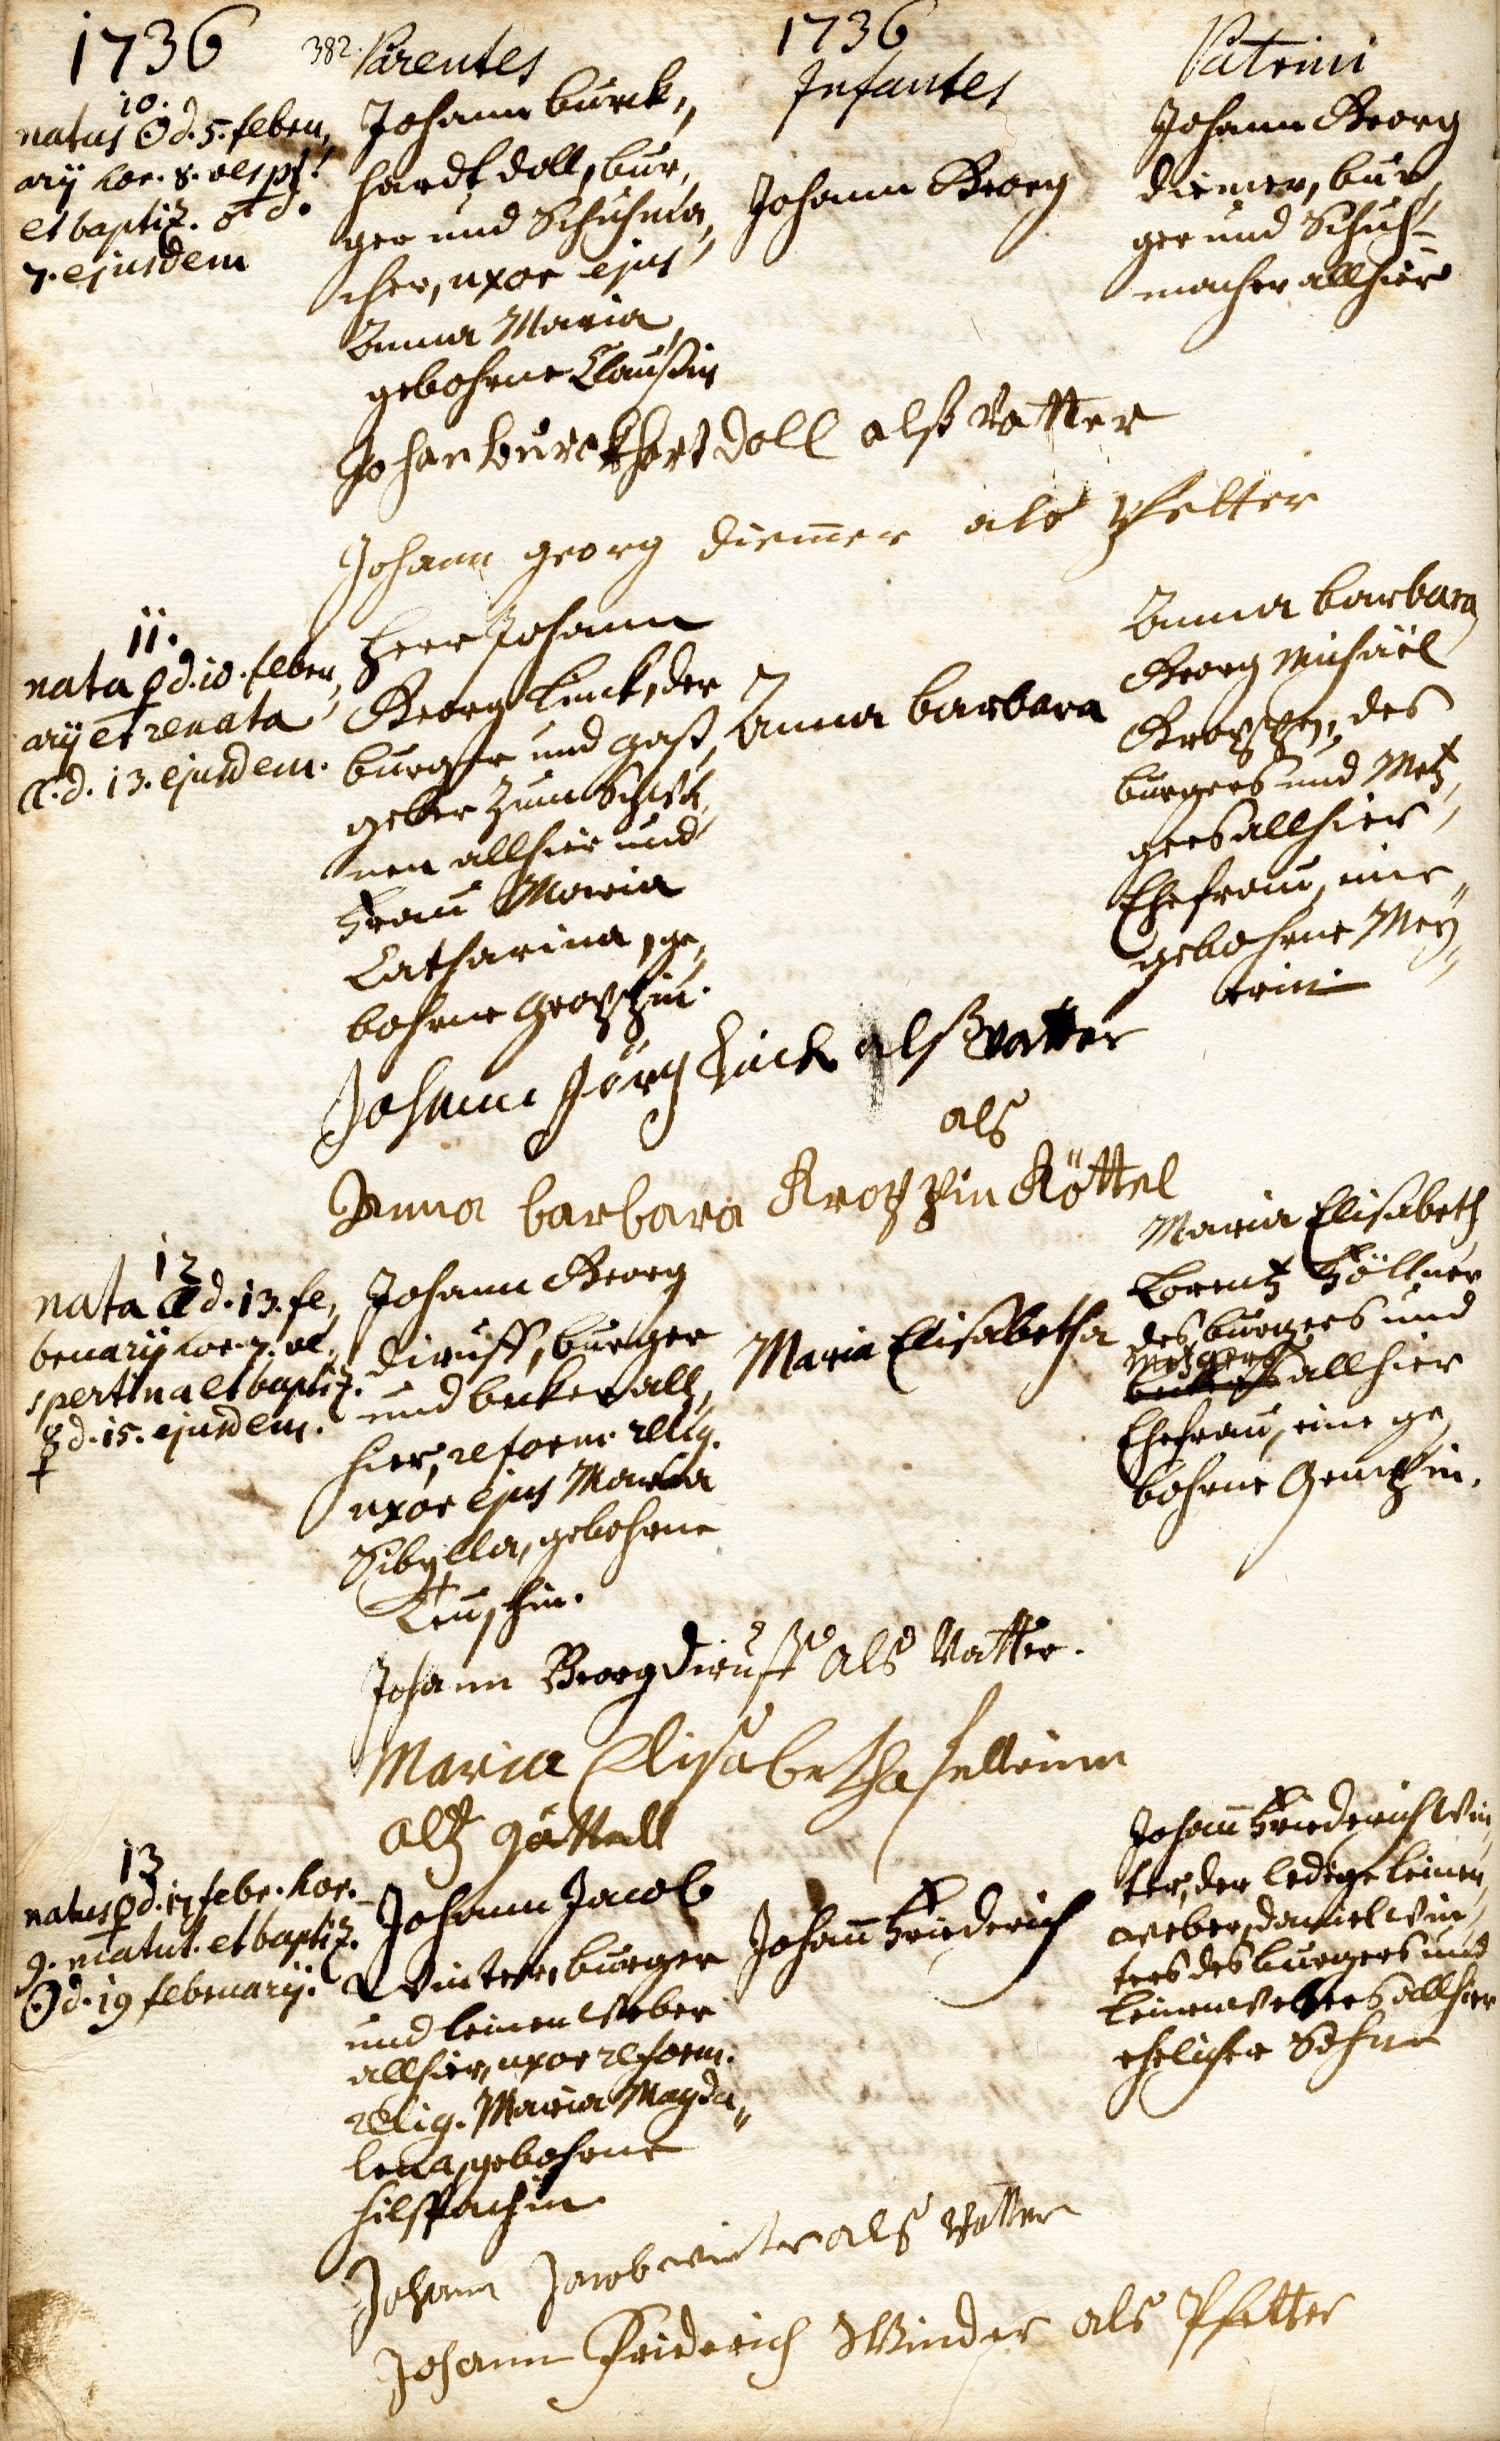 1736
382.
Parentes
1736
Infantes
Patrini
10.
natus ☉ d. 5. febru,
arij hor. 8. vesp.
et baptiz. ♂ d.
7. ejusdem
Johann burck,
hardt doll, bur,
ger und Schuhma,
cher, uxor ejus
Anna Maria
gebohrne Claußin
Johann Georg
Johann Georg
diemer, bur,
ger und Schuh=
macher allhier
Johan burckhart doll alß Vatter
Johann georg diem̅er als Pfetter
11.
nata ♀ d. 10. febru,
arij et renata
☾. d. 13. ejusdem.
Herr Johann
Georg Linck, der
burger und gast,
geber zum Schwa,
nen allhier und
Frau Maria
Catharina, ge,
bohrne
Anna barbara
Anna barbara
Georg Michäel
des
burgers und Metz,
gers allhier,
Ehefrau, eine
gebohrne Mey,
erin
Johann Jörg Linck alß Vatter
als
Anna barbara Krotzin Göttel
12
nata ☾ d. 13. fe,
bruarij hor. 7. ve,
spertina et baptiz.
☿ d. 15. ejusdem.
Johann Georg
diruff, burger
und becker all,
hier, reform. relig.
uxor ejus Maria
Sibylla, gebohrne
Maria Elisabetha
Maria Elisabeth
Lorentz Zöllner
des burgers und
Metzgers
beckers allhier
Ehefrau, eine ge,
bohrne
Johann Georg diruff als Vatter.
Maria Elisabetha
alß göttell
13
natus ♀ d. 17 febr. hor.
9. matut. et baptiz.
☉ d. 19 februarij.
Johann Jacob
Winter, burger
und leinen Weber
allhier, uxor reform.
relig. Maria Magda,,
lena, gebohrne
Hilspachin
Johan̅ Friederich
Johan̅ Friederich Win,
ter, der ledige leinen,
weber, daniel Win,
ters des burgers und
leinenwebers allhier
ehelicher Sohn
Johann Jacob winter alß Vatter
Johann Friderich Winder als Pfetter